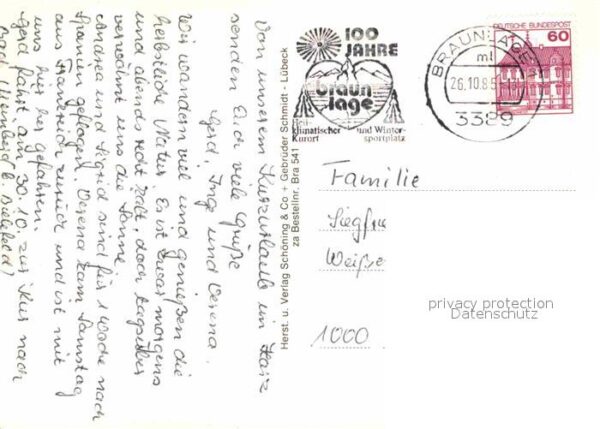 Von unserem Kurzurlaub im Harz
senden Euch viele Grüße
Gerd, Inge und Verena.
Wir wandern viel und genießen die
herbstliche Natur. Es ist zwar morgens
und abends recht kalt, doch tagsüber
verwöhnt uns die Sonne.
Andrea und Sigrid sind für 1 Woche nach
Spanien geflogen. Verena kam Samstag
aus Frankreich zurück und ist mit
uns hierher gefahren.
Gerd fährt am 30.10. zur Kur nach
Bad (b. Bielefeld)
Herst. u. Verlag Schöning & Co + Gebrüder Schmidt - Lübeck
za Bestellnr. Bra 541
100
JAHRE
braun
lage
Heil-
klimatischer
Kurort
und Winter-
sportplatz
BRAUNLAGE
ml
26.10.8
3389
DEUTSCHE BUNDESPOST
60
Familie
Siegfr
Weiße
1000
privacy protection
Datenschutz